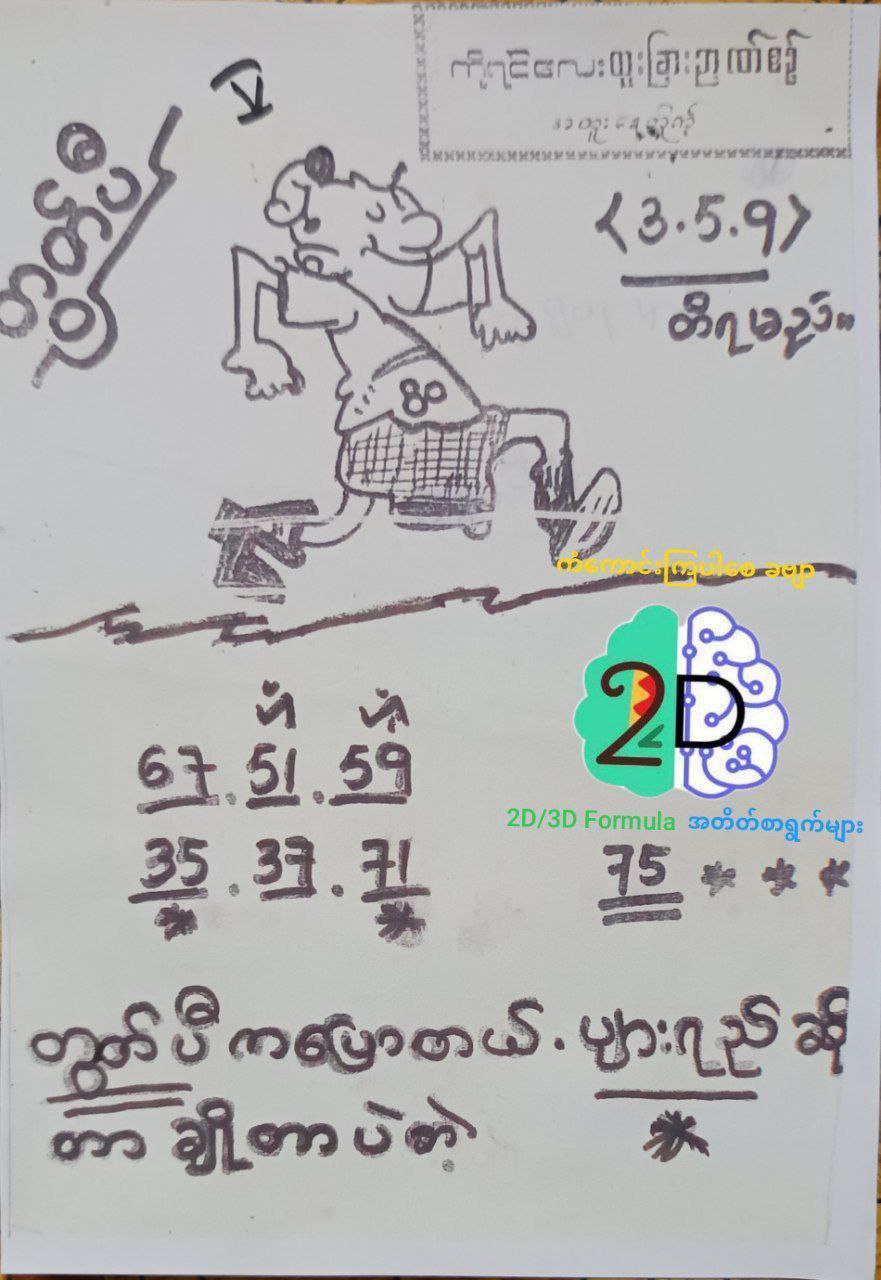 ကိုရင်လေးထူးခြားဉာဏ်စဉ်
V
<3.5.9>
တီရမည်။
80
ကံကောင်းကြပါစေ ခဗျာ
2D
2D/3D Formula အတိတ်စာရွက်များ
67.51.59
35.37.71
75 * * *
တွတ်ပီကပြောတယ်. ပျားရည်ဆို
တာ ချိုတာပဲတဲ့